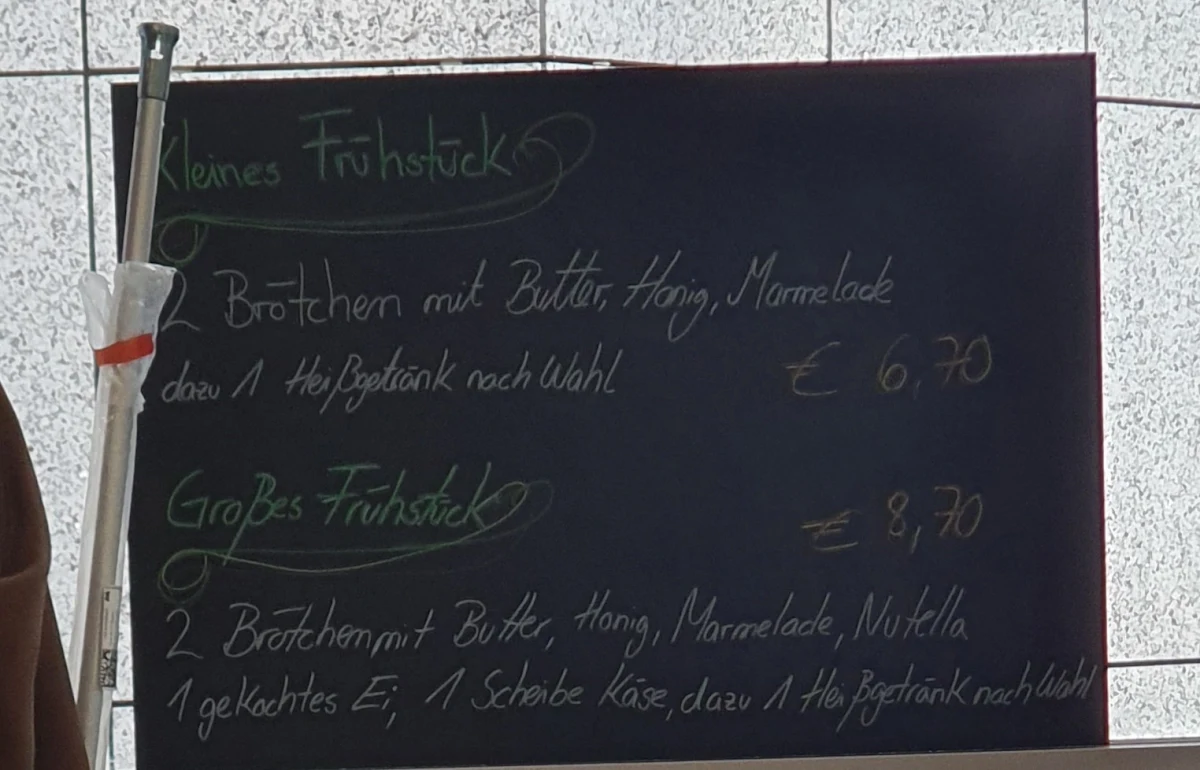 Kleines Frühstück
2 Brötchen mit Butter, Honig, Marmelade
dazu 1 Heißgetränk nach Wahl € 6,70
Großes Frühstück € 8,70
2 Brötchen mit Butter, Honig, Marmelade, Nutella
1 gekochtes Ei, 1 Scheibe Käse, dazu 1 Heißgetränk nach Wahl